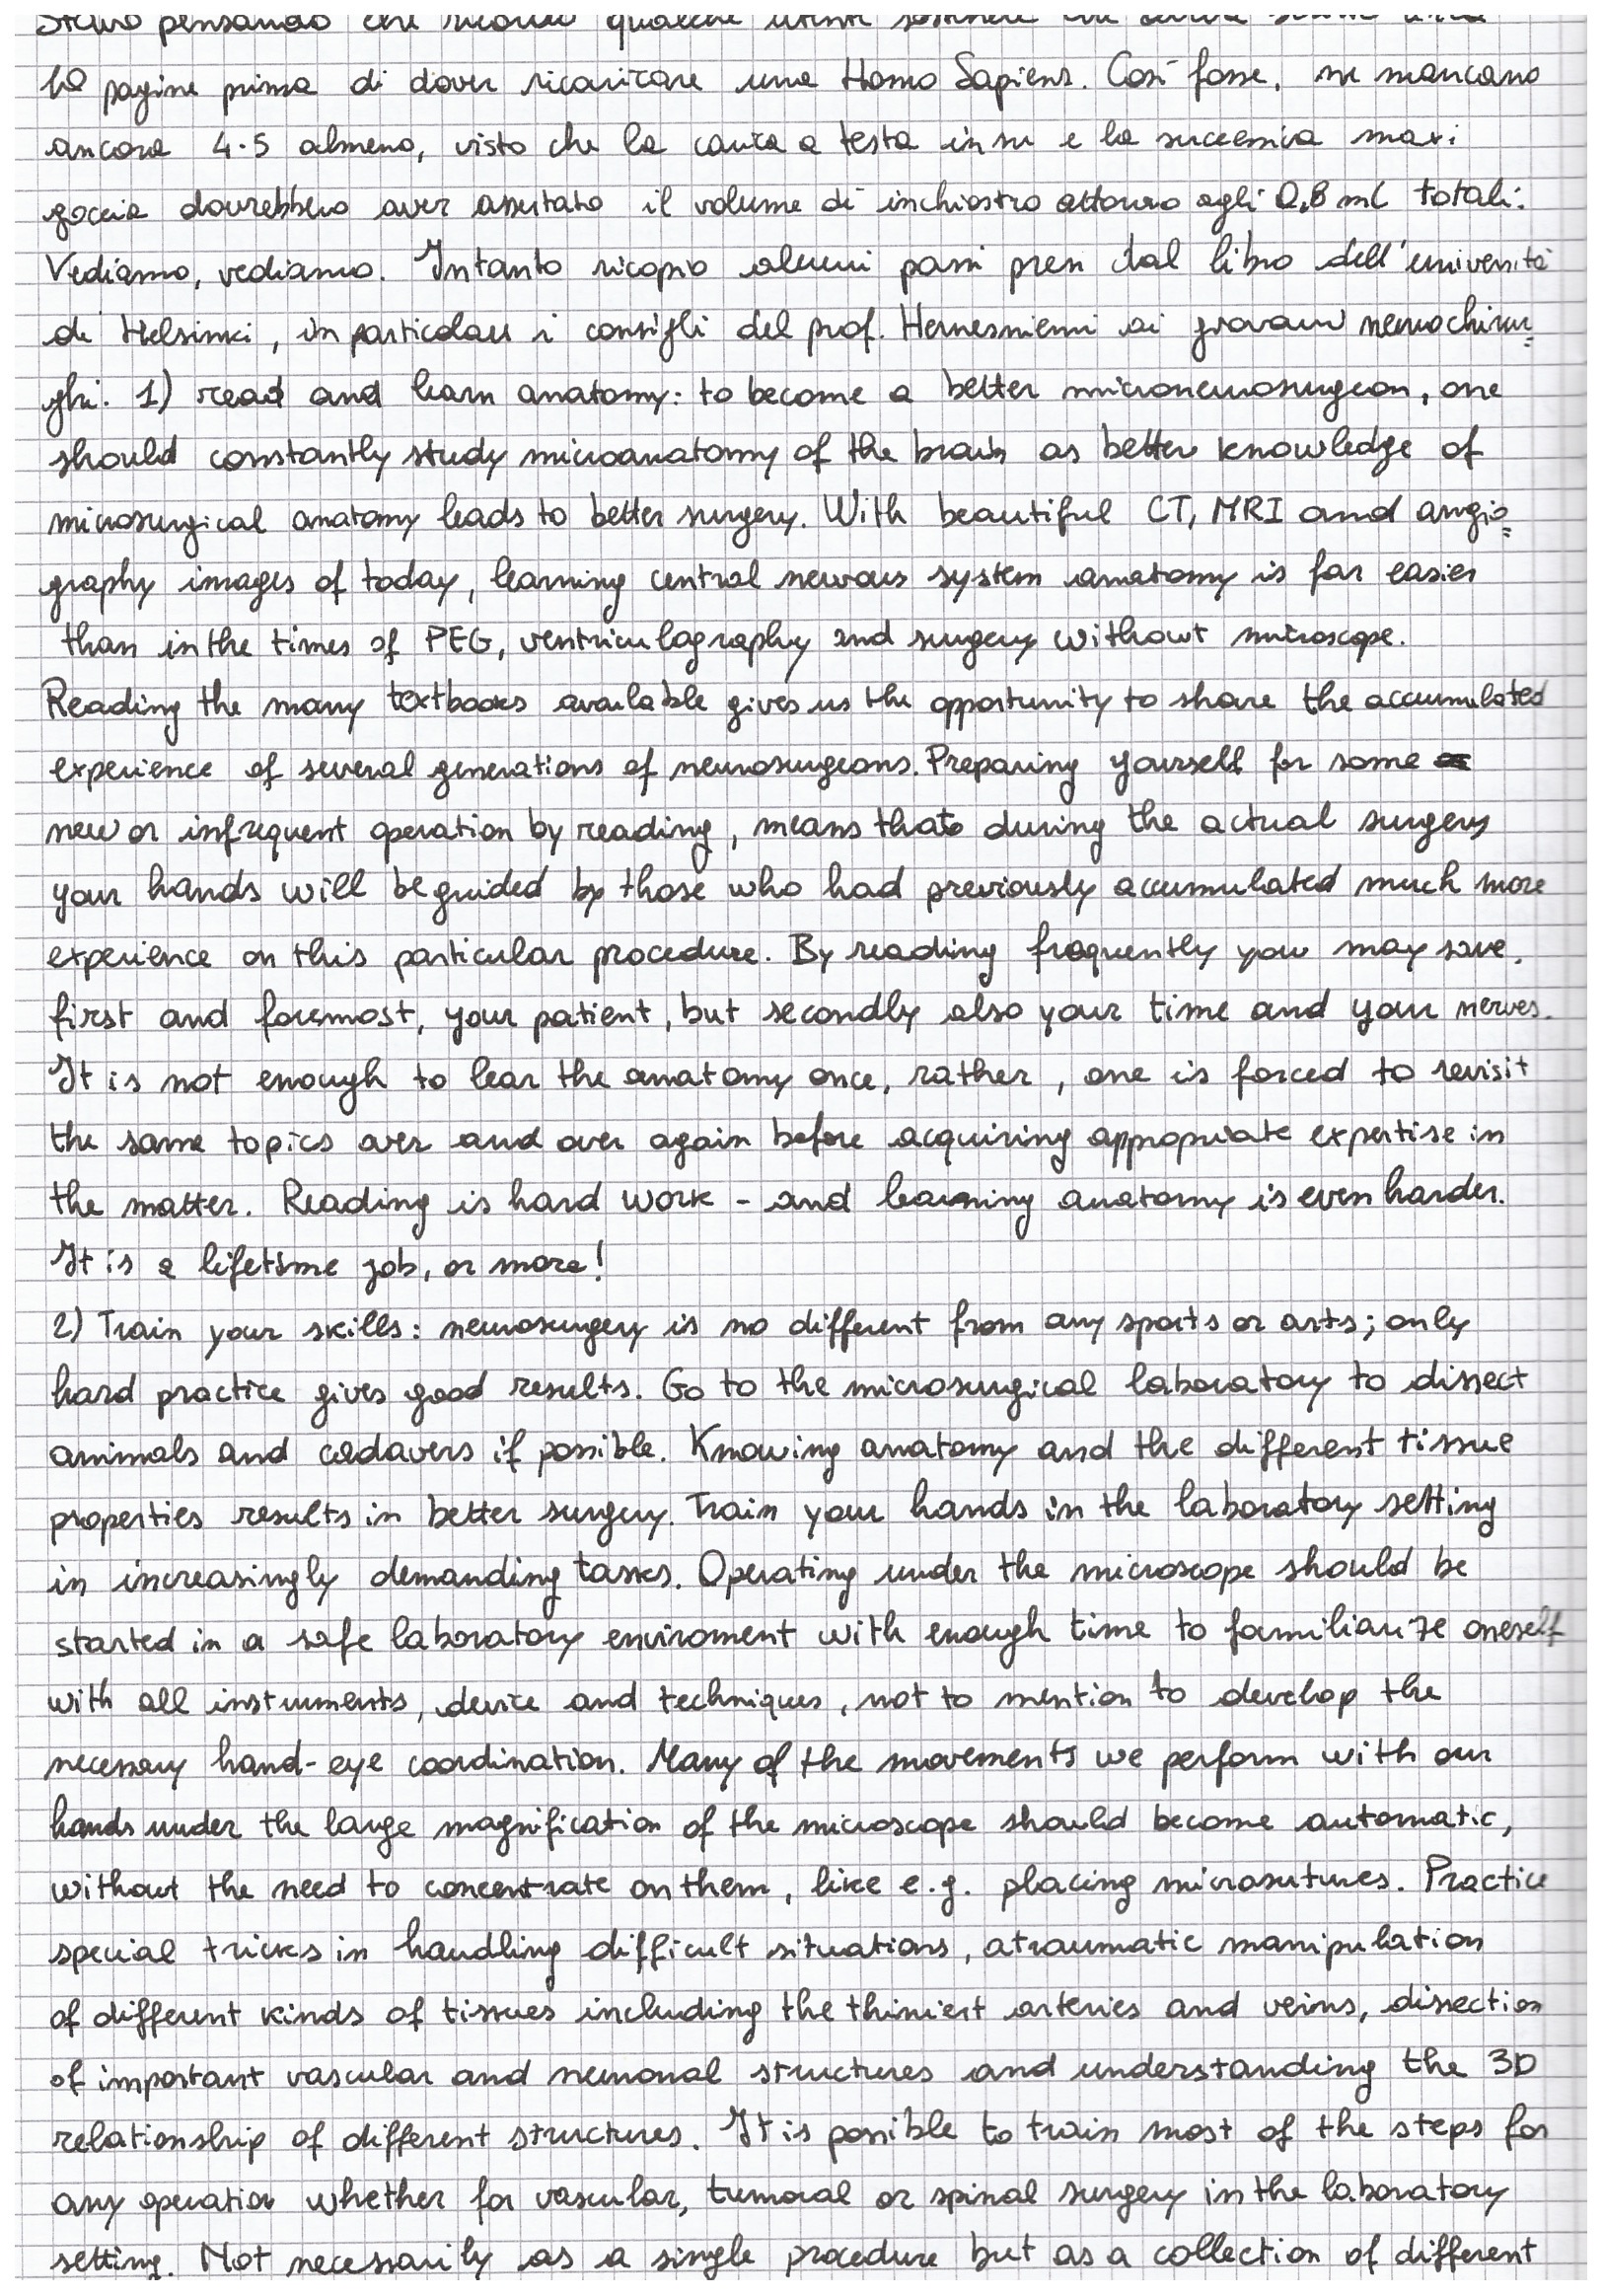 Stavo pensando che secondo qualche utente
10 pagine prima di dover ricaricare una Homo Sapiens. Così fosse, ne mancano
ancora 4-5 almeno, visto che la carica a testa in su e la successiva maxi
goccia dovrebbero aver assestato il volume di inchiostro attorno agli 0,8 ml totali.
Vediamo, vediamo. Intanto ricopio alcuni passi presi dal libro dell'università
di Helsinki, in particolare i consigli del prof. Hernesniemi ai giovani neurochirur=
ghi. 1) read and learn anatomy: to become a better microneurosurgeon, one
should constantly study microanatomy of the brain as better knowledge of
microsurgical anatomy leads to better surgery. With beautiful CT, MRI and angio=
graphy images of today, learning central nervous system anatomy is far easier
than in the times of PEG, ventriculography and surgery without microscope.
Reading the many textbooks available gives us the opportunity to share the accumulated
experience of several generations of neurosurgeons. Preparing yourself for some
new or infrequent operation by reading, means that during the actual surgery
your hands will be guided by those who had previously accumulated much more
experience on this particular procedure. By reading frequently you may save,
first and foremost, your patient, but secondly also your time and your nerves.
It is not enough to lear the anatomy once, rather, one is forced to revisit
the same topics over and over again before acquiring appropriate expertise in
the matter. Reading is hard work - and learning anatomy is even harder.
It is a lifetime job, or more!
2) Train your skills: neurosurgery is no different from any sports or arts; only
hard practice gives good results. Go to the microsurgical laboratory to dissect
animals and cadavers if possible. Knowing anatomy and the different tissue
properties results in better surgery. Train your hands in the laboratory setting
in increasingly demanding tasks. Operating under the microscope should be
started in a safe laboratory enviroment with enough time to familiarize oneself
with all instruments, device and techniques, not to mention to develop the
necessary hand-eye coordination. Many of the movements we perform with our
hands under the large magnification of the microscope should become automatic,
without the need to concentrate on them, like e.g. placing microsutures. Practice
special tricks in handling difficult situations, atraumatic manipulation
of different kinds of tissues including the thiniest arteries and veins, dissection
of important vascular and neuronal structures and understanding the 3D
relationship of different structures. It is possible to train most of the steps for
any operation whether for vascular, tumoral or spinal surgery in the laboratory
setting. Not necessarily as a single procedure but as a collection of different